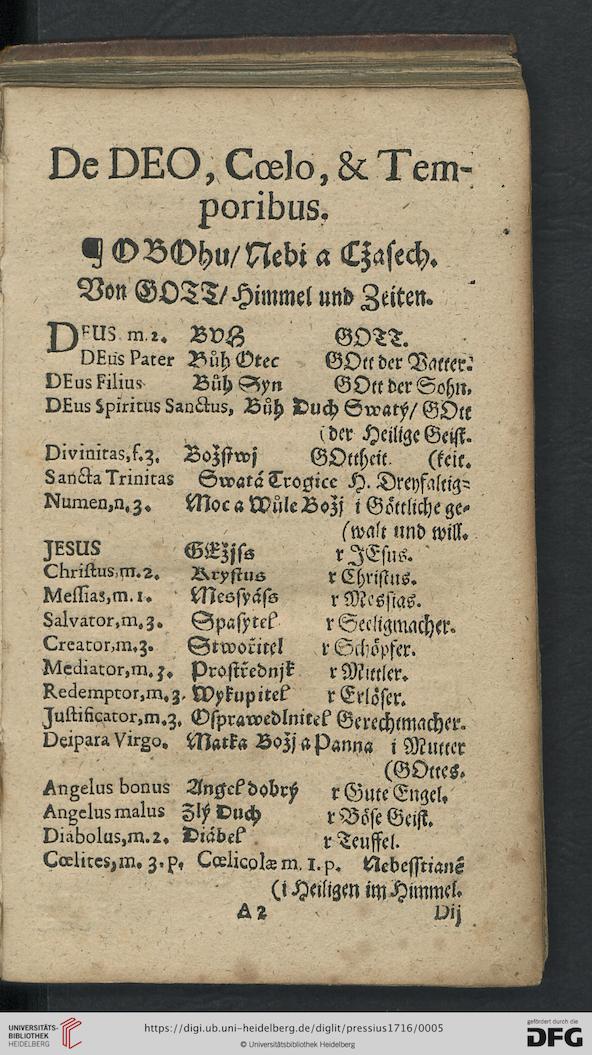 De DEO, Cœlo, & Tem-
poribus.
¶ O BOhu/ Nebi a Cžasech.
Von GOTT/ Himmel und Zeiten.
DEUS m.2. BVH GOTT.
DEus Pater Bůh Otec GOtt der Vatter.
DEus Filius Bůh Syn GOtt der Sohn.
DEus Spiritus Sanctus, Bůh Duch Swatý/ GOtt
(der Heilige Geist.
Divinitas,f.3. Božstwj GOttheit. (keit.
Sancta Trinitas Swatá Trogice H. Dreyfaltig-
Numen,n.3. Moc a Wůle Božj i Göttliche ge-
(walt und will.
JESUS GEžjss r JEsus.
Christus,m.2. Krystus r Christus.
Messias,m.1. Messyáss r Messias.
Salvator,m.3. Spasytel r Seeligmacher.
Creator,m.3. Stwořitel r Schöpfer.
Mediator,m.3. Prostřednjk r Mittler.
Redemptor,m.3. Wykupitel r Erlöser.
Justificator,m.3. Osprawedlnitel Gerechtmacher.
Deipara Virgo. Matka Božj a Panna i Mutter
(GOttes.
Angelus bonus Angel dobrý r Gute Engel.
Angelus malus Zlý Duch r Böse Geist.
Diabolus,m.2. Diábel r Teuffel.
Cœlites,m. 3.p. Cœlicolæ m. 1.p. Nebesstiané
(i Heiligen im Himmel.
A 2 Dij
UNIVERSITÄTS-
BIBLIOTHEK
HEIDELBERG
https://digi.ub.uni-heidelberg.de/diglit/pressius1716/0005
© Universitätsbibliothek Heidelberg
gefördert durch die
DFG